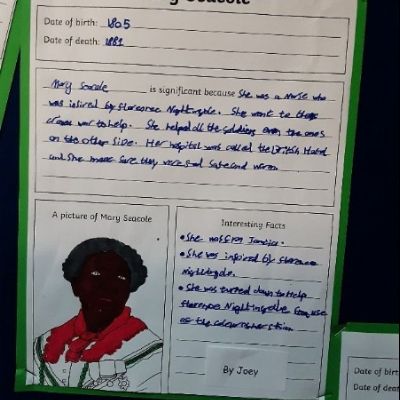 Mary Seacole
Date of birth: 1805
Date of death: 1881
Mary Seacole is significant because She was a nurse who
was isbired by florcence Nightingale. She went to the
crimea war to help. She helped all the soldiers even the ones
on the other side. Her hospital was called the British Hotel
and She made sure they were and safe and warm.
A picture of Mary Seacole
Interesting Facts
• She was from Jamaica.
• She was inpired by florence
nightingale.
• She was turned down to help
florence Nightingale because
of the colour of her skin
By Joey
Date of birt
Date of deat